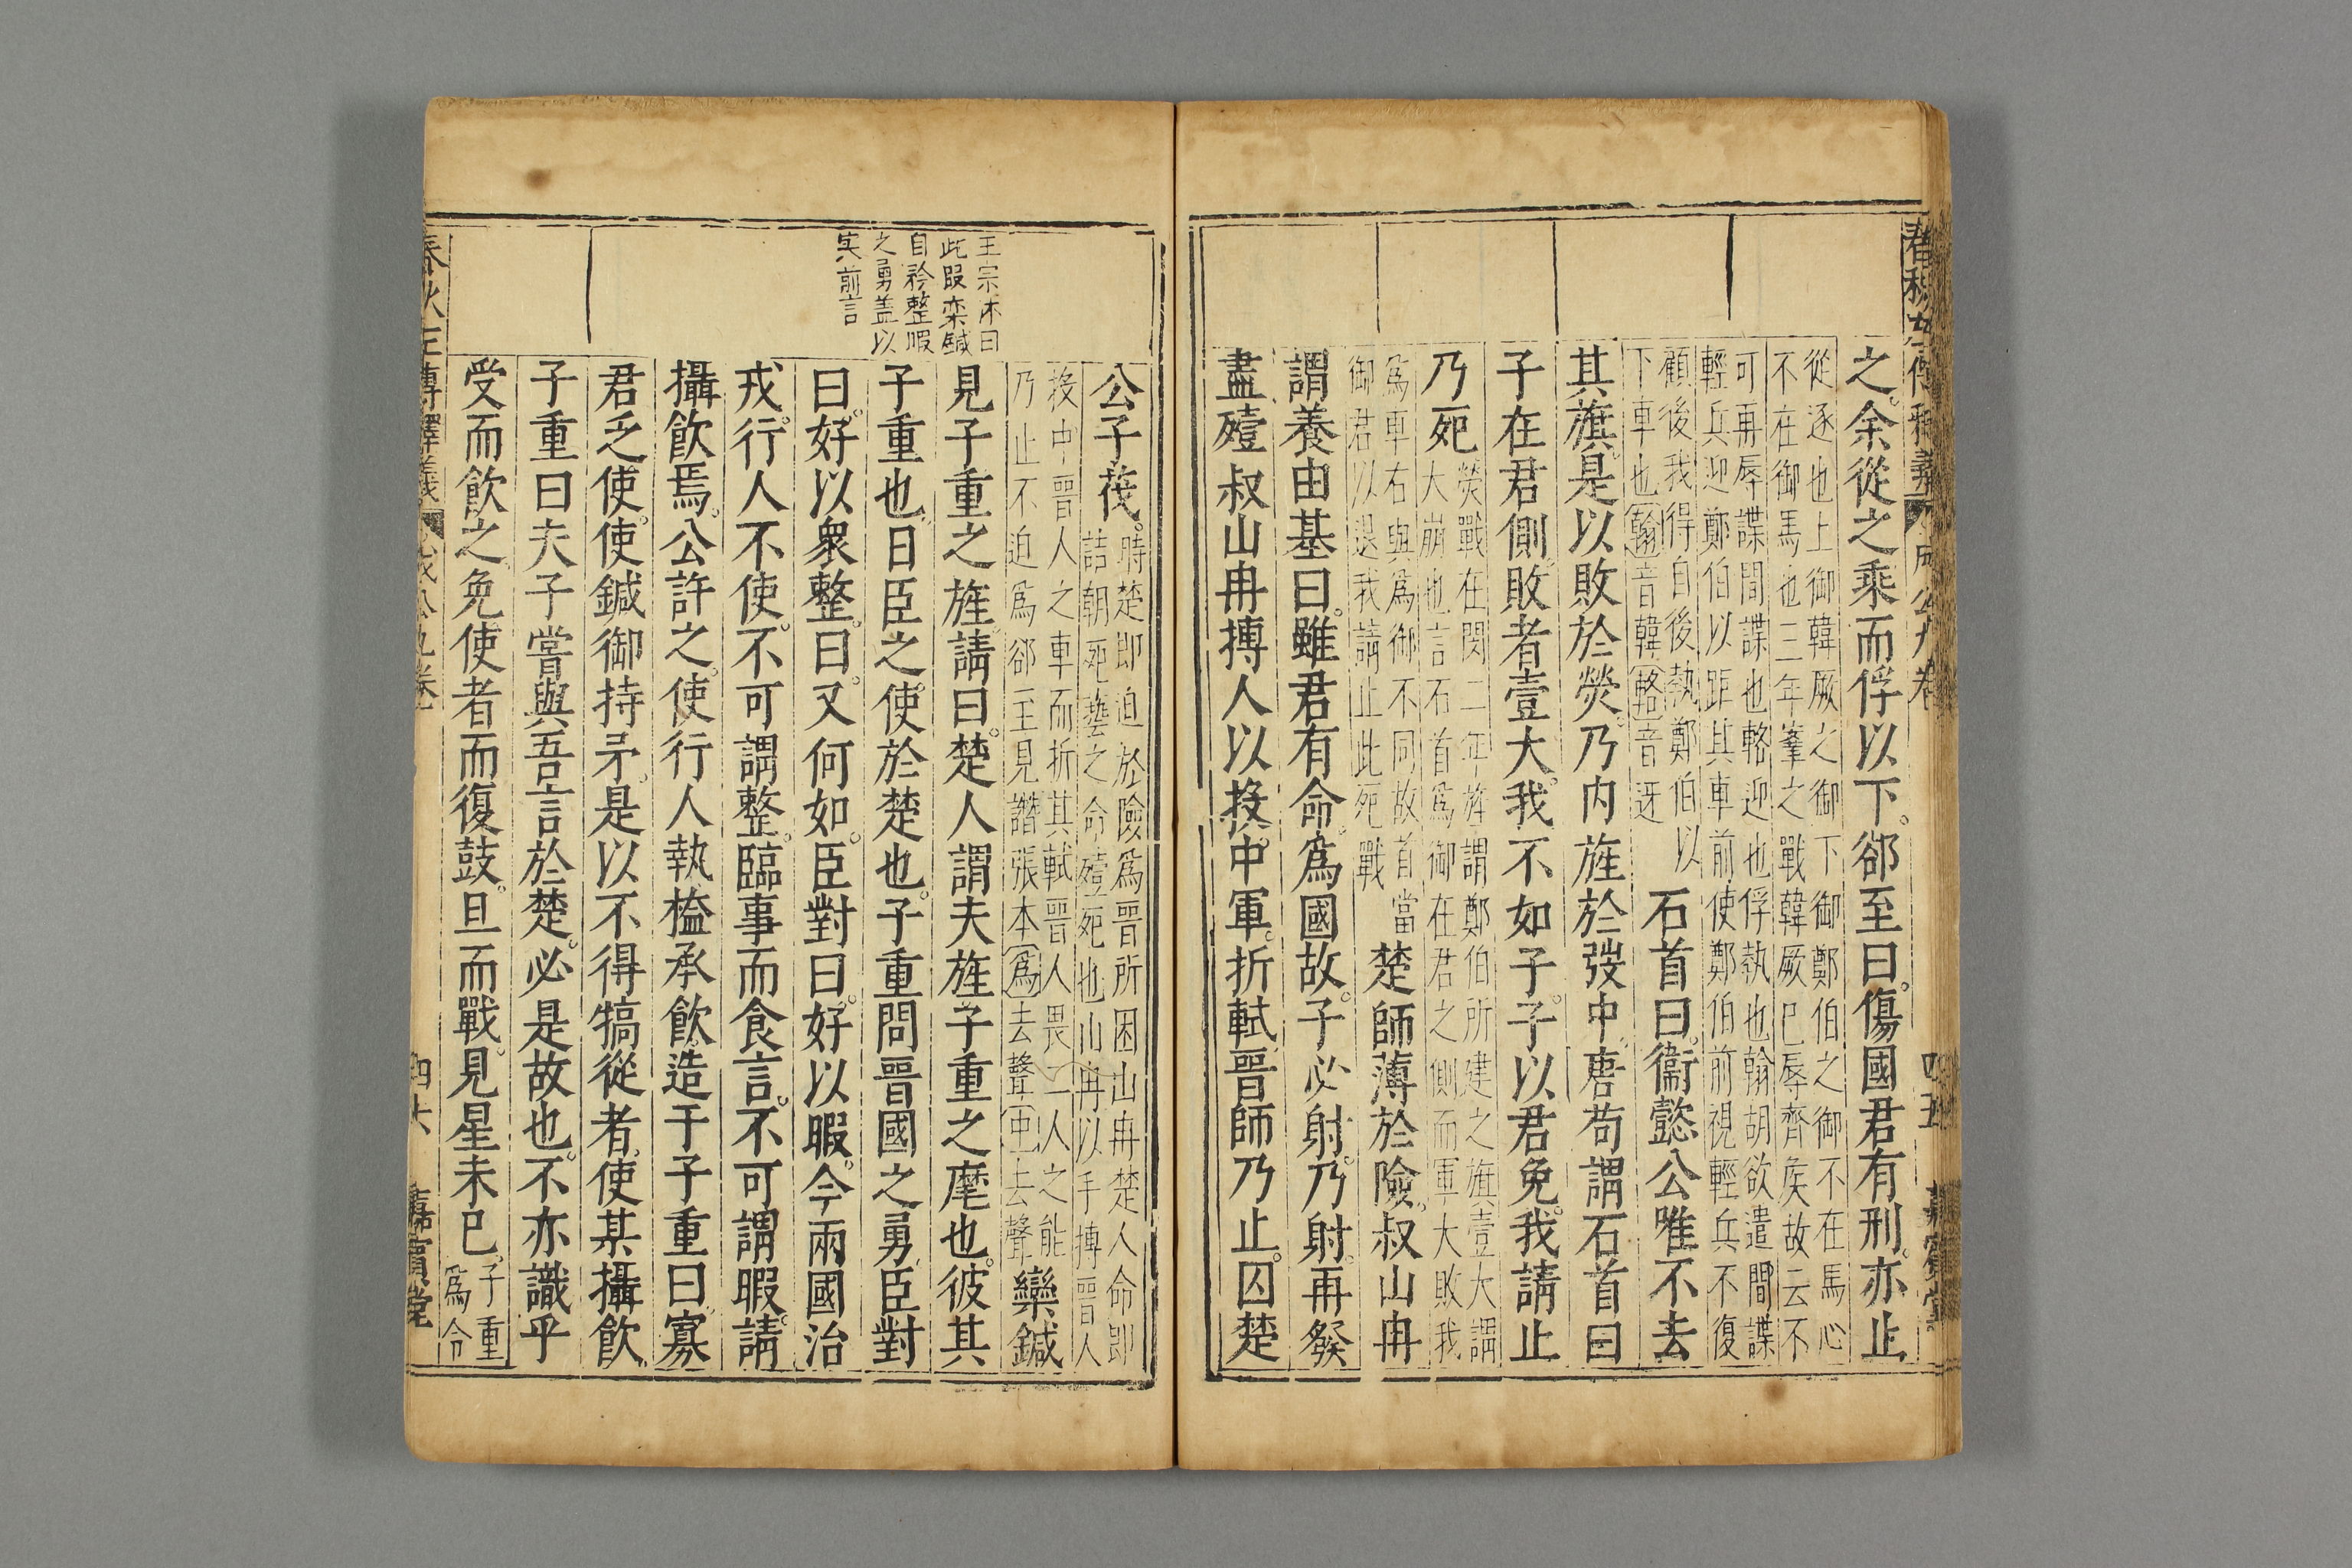 春秋左傳釋義 成公九卷 四五 嘉賓堂
之余從之乘而俘以下郤至曰傷國君有刑亦止
從逐也上御韓厥之御下御鄭伯之御不在馬心
不在御馬也三年鞌之戰韓厥已辱齊矦故云不
可再辱諜間諜也輅迎也俘執也翰胡欲遣間諜
輕兵迎鄭伯以距其車前使鄭伯前視輕兵不復
顧後我得自後執鄭伯以
下車也翰音韓輅音迓
石首曰衞懿公唯不去
其旗是以敗於熒乃内旌於弢中唐苟謂石首曰
子在君側敗者壹大我不如子子以君免我請止
乃死
熒戰在閔二年旌謂鄭伯所建之旗壹大謂
大崩也言石首爲御在君之側而軍大敗我
爲車右與爲御不同故首當
御君以退我請止此死戰
楚師薄於險叔山冉
謂養由基曰雖君有命爲國故子必射乃射再發
盡殪叔山冉搏人以投中軍折軾晉師乃止囚楚
公子茷
時楚即迫於險爲晉所困山冉楚人命即
詰朝死藝之命殪死也山冉以手搏晉人
投中晉人之車而折其軾晉人畏二人之能
乃止不迫爲郤至見譖張本爲去聲中去聲
欒鍼
見子重之旌請曰楚人謂夫旌子重之麾也彼其
子重也日臣之使於楚也子重問晉國之勇臣對
曰好以衆整曰又何如臣對曰好以暇今兩國治
戎行人不使不可謂整臨事而食言不可謂暇請
攝飲焉公許之使行人執榼承飲造于子重曰寡
君乏使使鍼御持矛是以不得犒從者使某攝飲
子重曰夫子嘗與吾言於楚必是故也不亦識乎
受而飲之免使者而復鼓旦而戰見星未已
子重
爲令
王宗沐曰
此叚栾鍼
自矜整暇
之勇盖以
実前言
春秋左傳釋義 成公九卷 四六 嘉賓堂